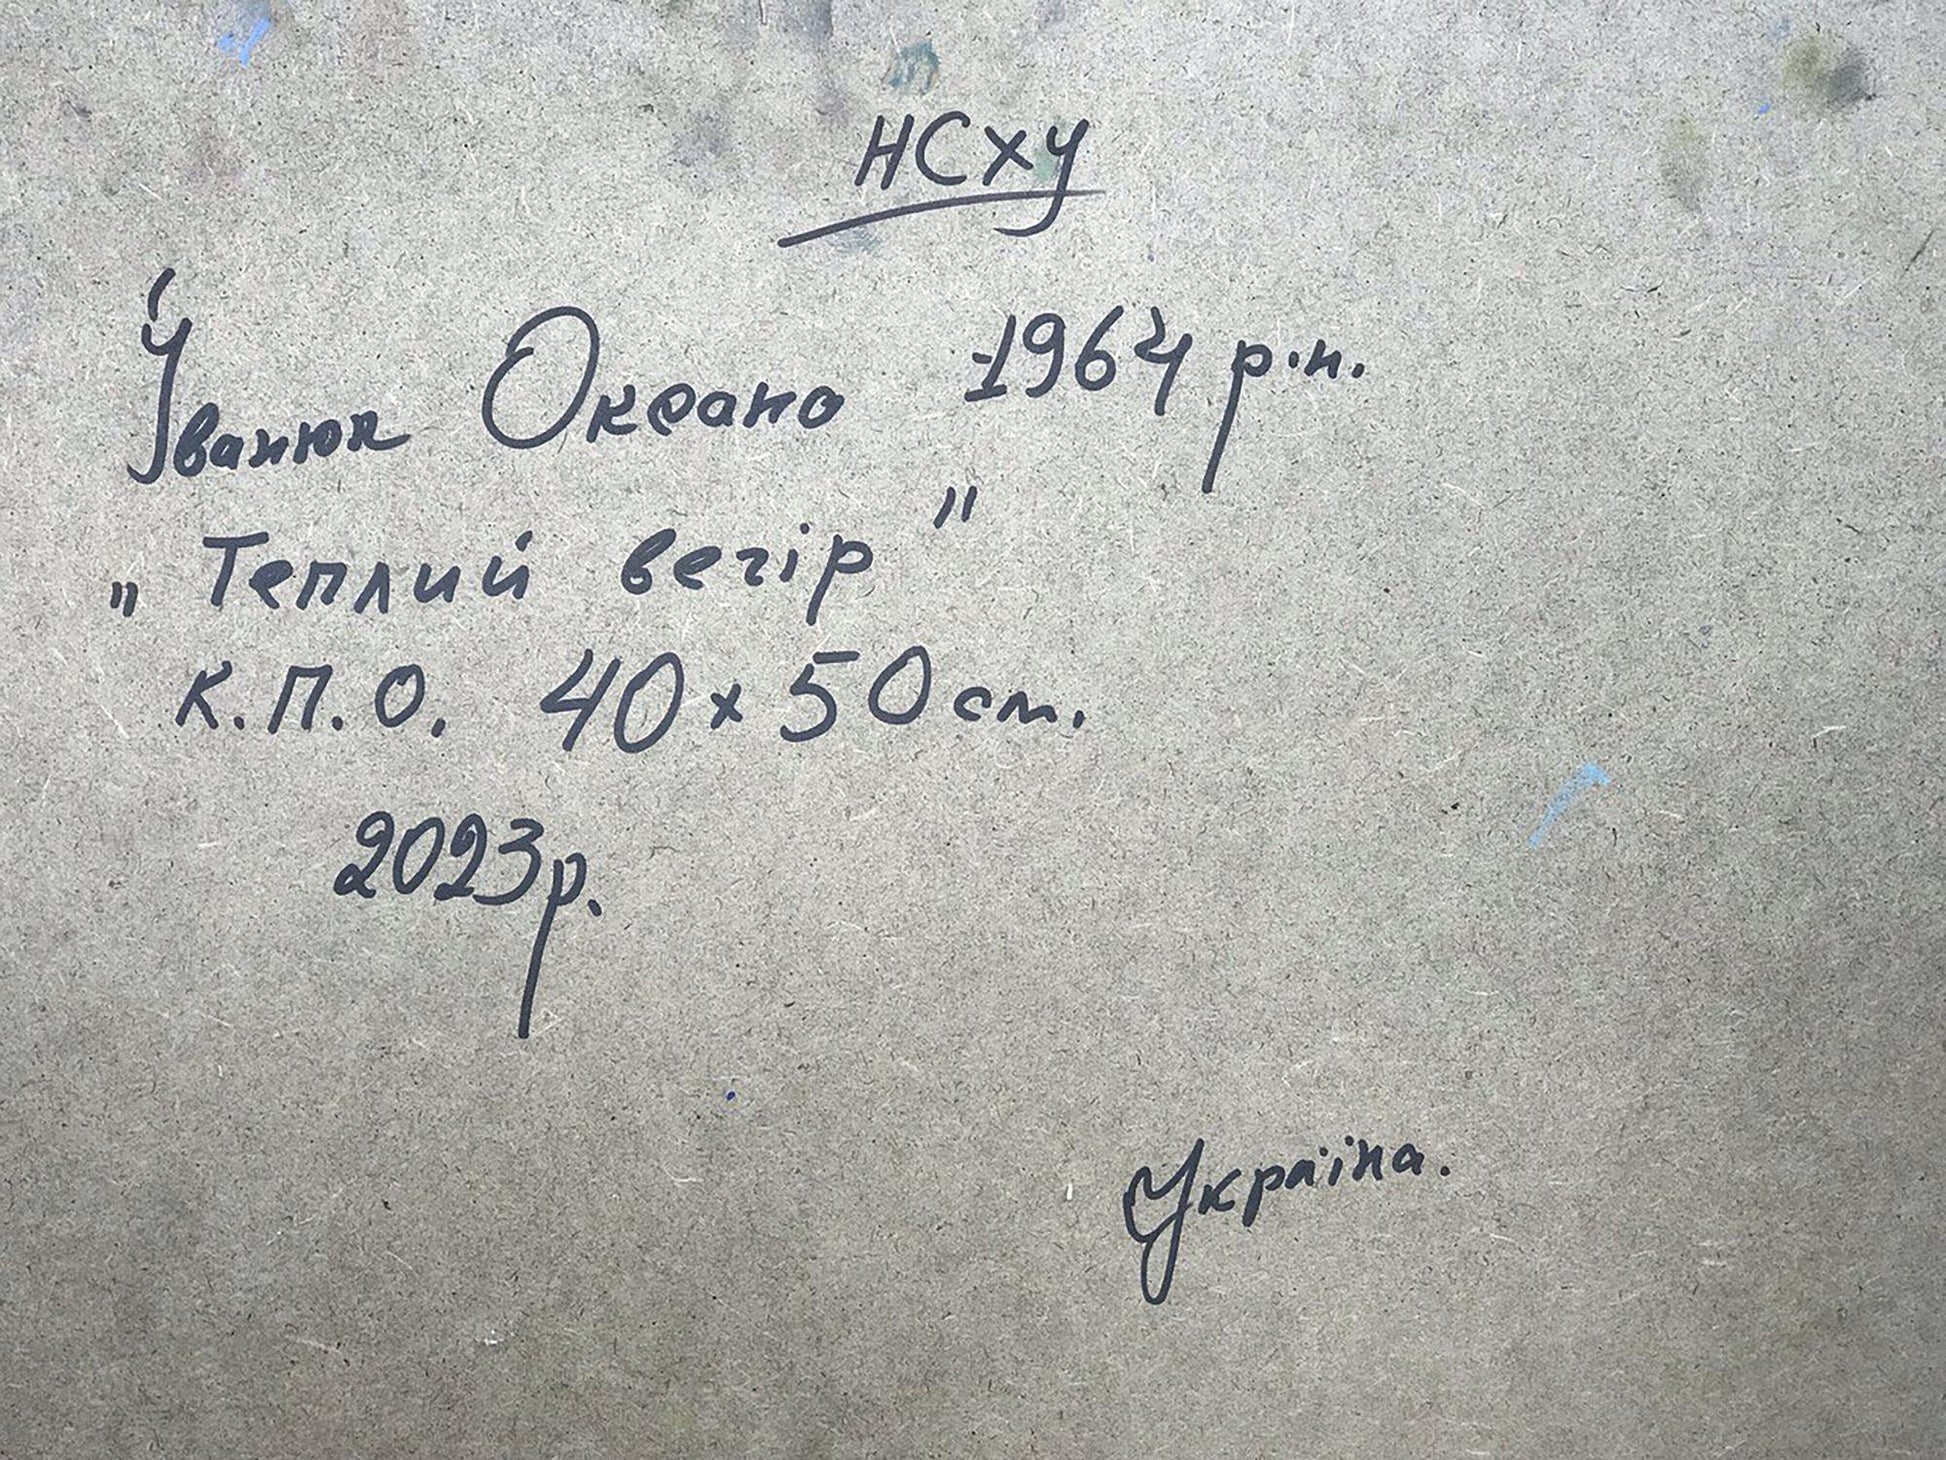 НСХУ
Іванюк Океано 1964 р.н.
„Теплий вечір"
К.П.О. 40x50 см.
2023р.
Україна.